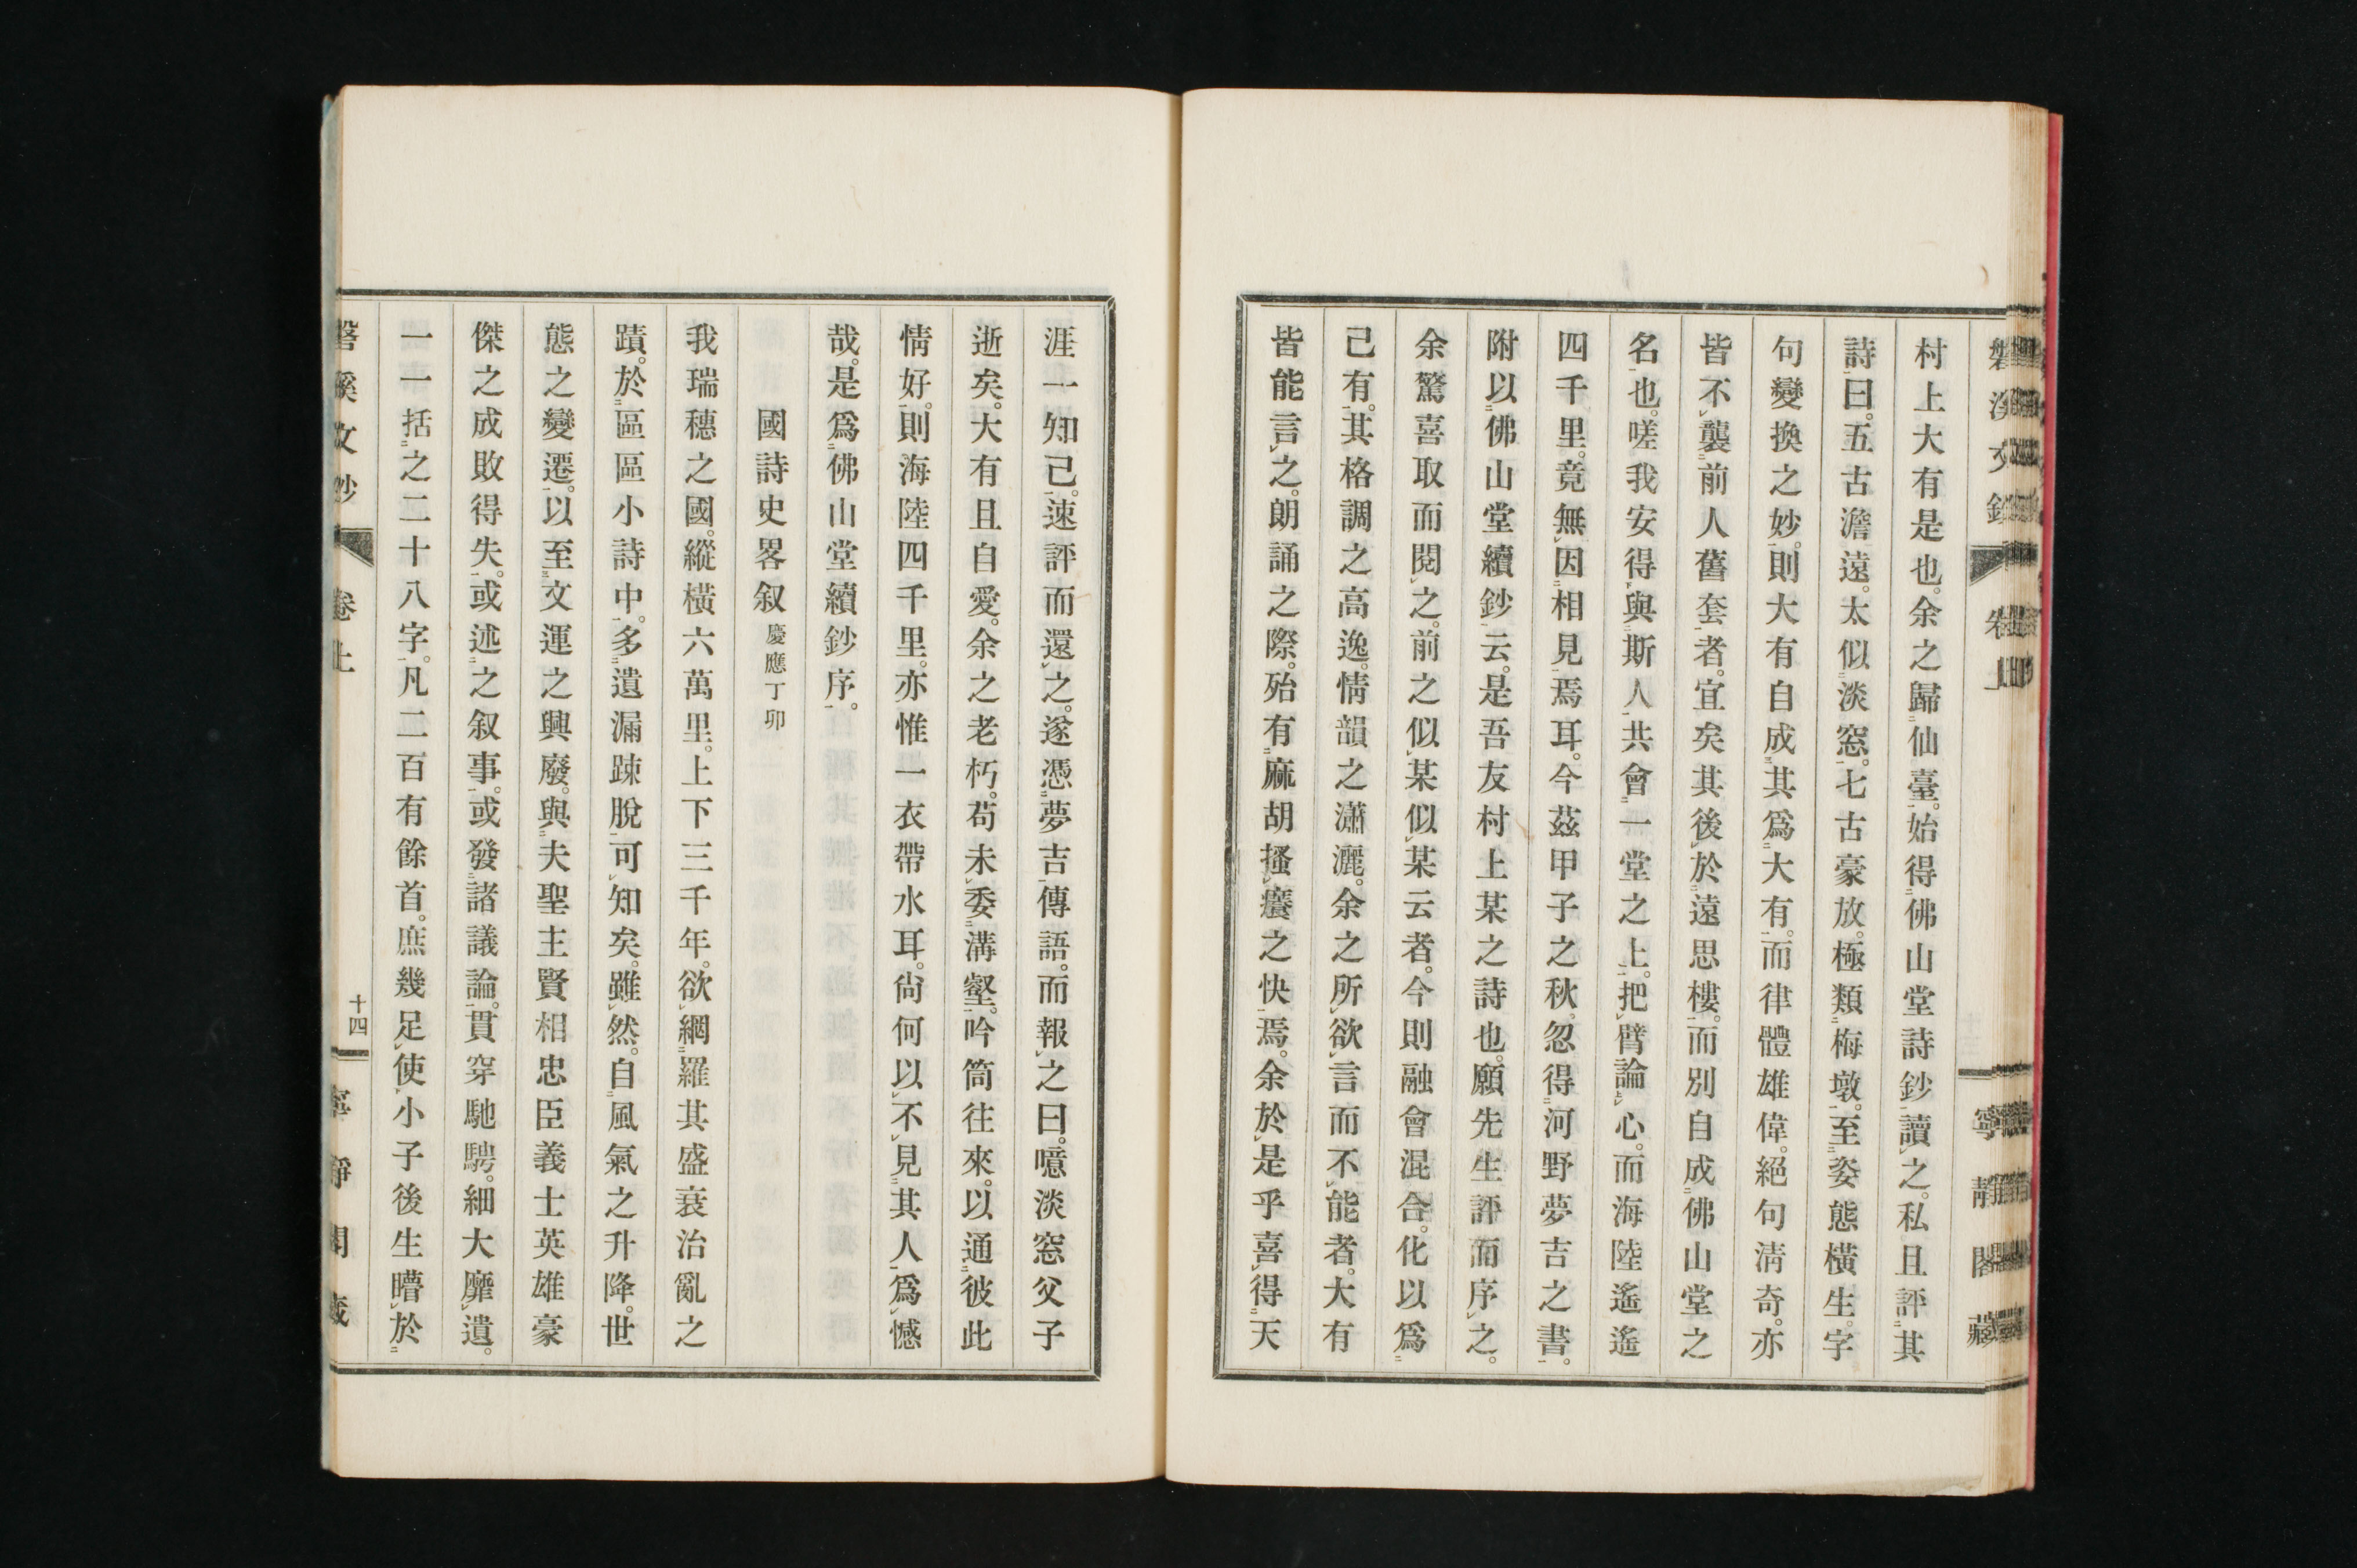 村上大有是也。余之歸仙臺。始得佛山堂詩鈔讀之。私且評其
詩曰。五古澹遠。太似淡窓。七古豪放。極類梅墩。至姿態橫生。字
句變換之妙。則大有自成其爲大有。而律體雄偉。絕句淸奇。亦
皆不襲前人舊套者。宜矣其後於遠思樓。而別自成佛山堂之
名也。嗟我安得與斯人共會一堂之上。把臂論心。而海陸遙遙
四千里。竟無因相見焉耳。今茲甲子之秋。忽得河野夢吉之書。
附以佛山堂續鈔云。是吾友村上某之詩也。願先生評而序之。
余驚喜取而閱之。前之似某似某云者。今則融會混合。化以爲
己有。其格調之高逸。情韻之瀟灑。余之所欲言而不能者。大有
皆能言之。朗誦之際。殆有麻胡搔癢之快焉。余於是乎喜得天
涯一知己。速評而還之。遂憑夢吉傳語。而報之曰。噫淡窓父子
逝矣。大有且自愛。余之老朽。苟未委溝壑。吟筒往來。以通彼此
情好。則海陸四千里。亦惟一衣帶水耳。尙何以不見其人爲憾
哉。是爲佛山堂續鈔序。
國詩史畧叙 慶應丁卯
我瑞穗之國。縱橫六萬里。上下三千年。欲網羅其盛衰治亂之
蹟。於區區小詩中。多遺漏踈脫可知矣。雖然。自風氣之升降。世
態之變遷。以至文運之興廢。與夫聖主賢相忠臣義士英雄豪
傑之成敗得失。或述之叙事。或發諸議論。貫穿馳騁。細大靡遺。
一一括之二十八字。凡二百有餘首。庶幾足使小子後生瞢於
磐溪文鈔 卷上 十四 寧靜閣藏